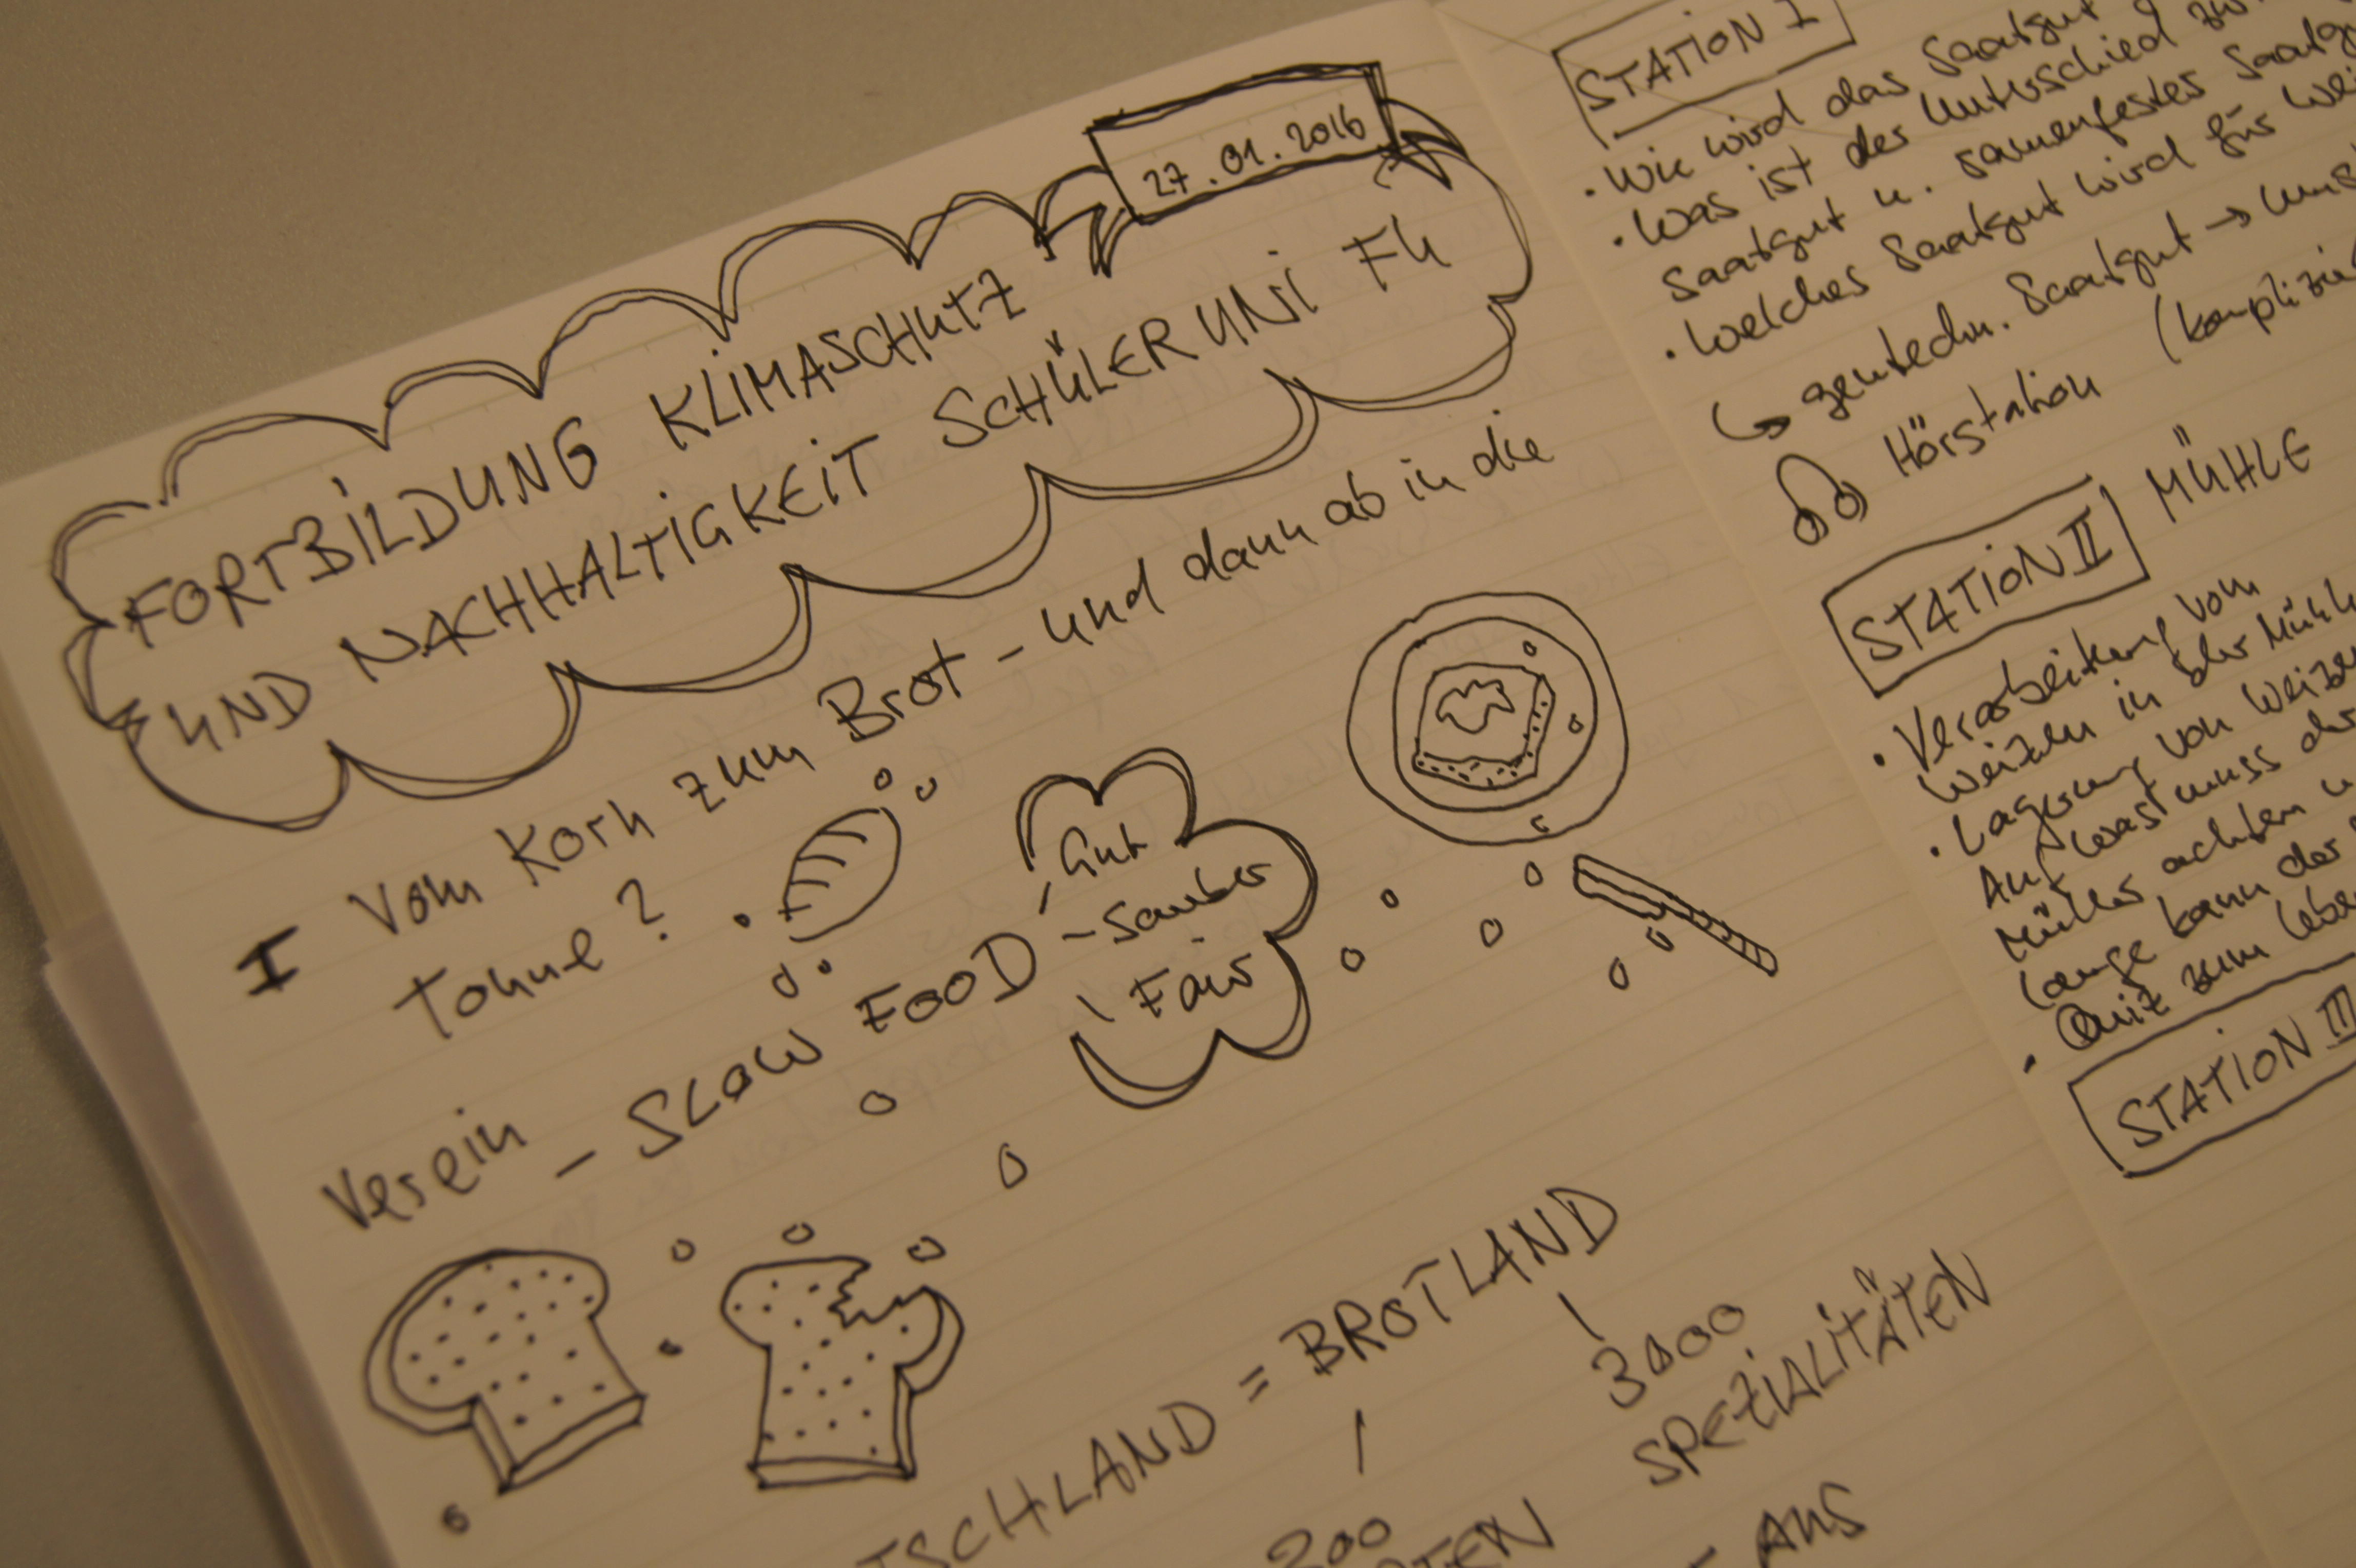 27.01.2016
FORTBILDUNG KLIMASCHUTZ
UND NACHHALTIGKEIT SCHÜLER UNI FU
I Vom Korn zum Brot - und dann ab in die
Tonne?
Verein - SLOW FOOD - Gut
- Sauber
Fair
TSCHLAND = BROTLAND
3000
SPEZIALITÄTEN
300
- AUS
STATION I
· Wie wird das Saatgut
· Was ist der Unterschied
Saatgut u. samenfestes
· Welches Saatgut wird für
↳ gentechn. Saatgut →
Hörstation
STATION II MÜHLE
· Verarbeitung vom
Weizen in der
· Lagerung von
Auf was muss
Müller achten u
Lange kann der
· Quiz zum
STATION III